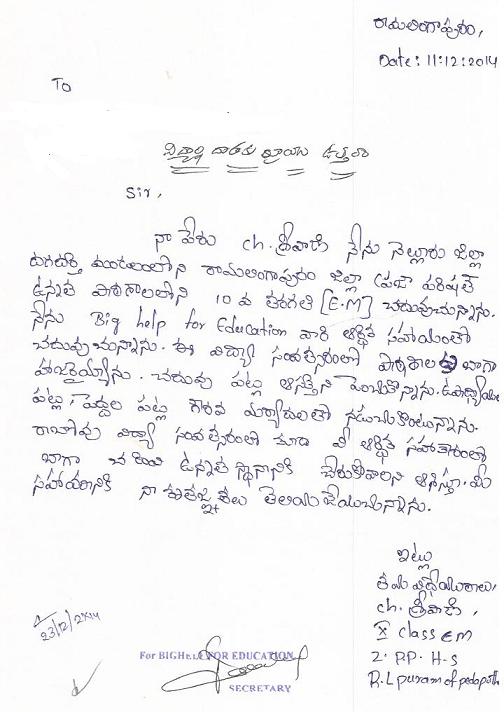 రామలింగాపురం,
Date: 11:12:2014
To
విద్యార్థి దాతకు వ్రాయు ఉత్తరం
Sir,
నా పేరు ch. శ్రీవాణి నేను నెల్లూరు జిల్లా
దగదర్తి మండలంలోని రామలింగాపురం జిల్లా ప్రజా పరిషత్
ఉన్నత పాఠశాలలోని 10 వ తరగతి [E.M] చదువుచున్నాను.
నేను Big help for Education వారి ఆర్థిక సహాయంతో
చదువుచున్నాను. ఈ విద్యా సంవత్సరంలో పాఠశాలకు బాగా
హాజరయ్యాను. చదువు పట్ల ఆసక్తిని పెంచుకొన్నాను. ఉపాధ్యాయుల
పట్ల, పెద్దల పట్ల గౌరవ మర్యాదలతో నడుచుకుంటున్నాను.
రాబోవు విద్యా సంవత్సరంలో కూడా మీ ఆర్థిక సహకారంతో
బాగా చదివి ఉన్నత స్థానానికి చేరుకోవాలని ఆశిస్తూ, మీ
సహాయానికి నా కృతజ్ఞతలు తెలియజేయుచున్నాను.
ఇట్లు
తమ విధేయురాలు,
ch. శ్రీవాణి,
X class EM
Z. P.P. H-S
R.L puram of
23/12/2014
For BIGHELP FOR EDUCATION
SECRETARY